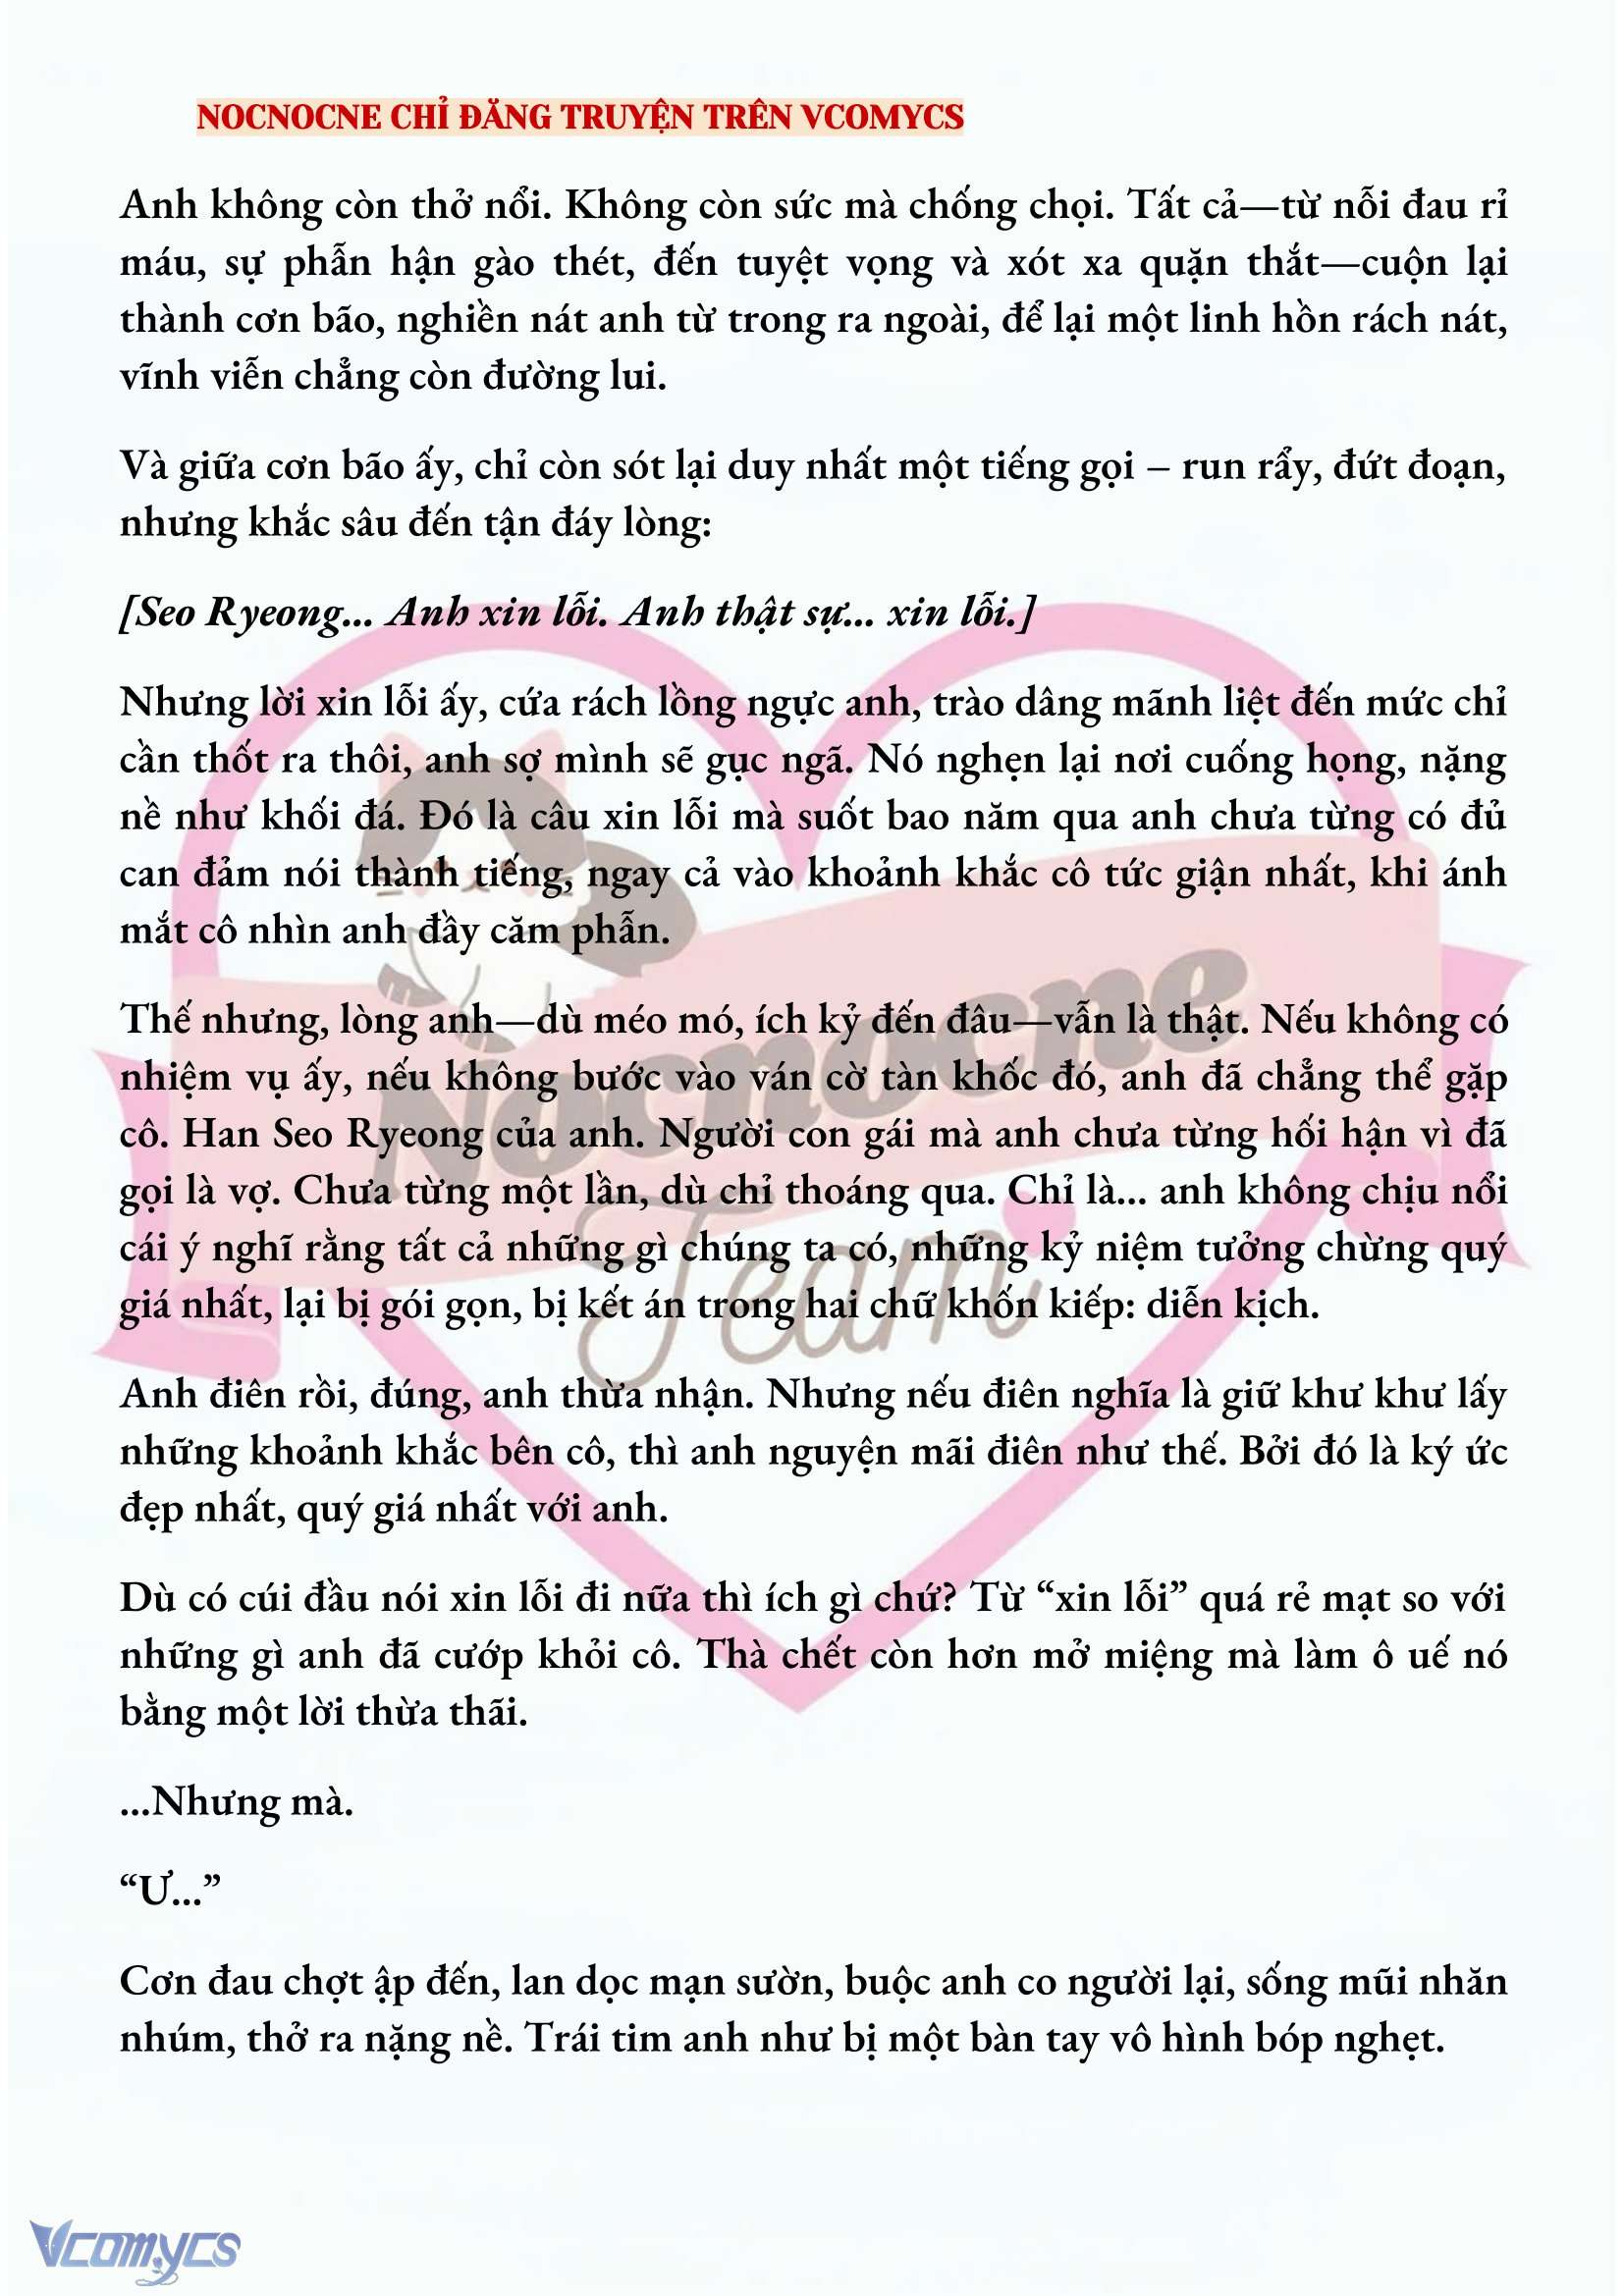 NOCNOCNE CHỈ ĐĂNG TRUYỆN TRÊN VCOMYCS
Anh không còn thở nổi. Không còn sức mà chống chọi. Tất cả—từ nỗi đau rỉ
máu, sự phẫn hận gào thét, đến tuyệt vọng và xót xa quặn thắt—cuộn lại
thành cơn bão, nghiền nát anh từ trong ra ngoài, để lại một linh hồn rách nát,
vĩnh viễn chẳng còn đường lui.
Và giữa cơn bão ấy, chỉ còn sót lại duy nhất một tiếng gọi – run rẩy, đứt đoạn,
nhưng khắc sâu đến tận đáy lòng:
[Seo Ryeong... Anh xin lỗi. Anh thật sự... xin lỗi.]
Nhưng lời xin lỗi ấy, cứa rách lồng ngực anh, trào dâng mãnh liệt đến mức chỉ
cần thốt ra thôi, anh sợ mình sẽ gục ngã. Nó nghẹn lại nơi cuống họng, nặng
nề như khối đá. Đó là câu xin lỗi mà suốt bao năm qua anh chưa từng có đủ
can đảm nói thành tiếng, ngay cả vào khoảnh khắc cô tức giận nhất, khi ánh
mắt cô nhìn anh đầy căm phẫn.
Thế nhưng, lòng anh—dù méo mó, ích kỷ đến đâu—vẫn là thật. Nếu không có
nhiệm vụ ấy, nếu không bước vào ván cờ tàn khốc đó, anh đã chẳng thể gặp
cô. Han Seo Ryeong của anh. Người con gái mà anh chưa từng hối hận vì đã
gọi là vợ. Chưa từng một lần, dù chỉ thoáng qua. Chỉ là... anh không chịu nổi
cái ý nghĩ rằng tất cả những gì chúng ta có, những kỷ niệm tưởng chừng quý
giá nhất, lại bị gói gọn, bị kết án trong hai chữ khốn kiếp: diễn kịch.
Anh điên rồi, đúng, anh thừa nhận. Nhưng nếu điên nghĩa là giữ khư khư lấy
những khoảnh khắc bên cô, thì anh nguyện mãi điên như thế. Bởi đó là ký ức
đẹp nhất, quý giá nhất với anh.
Dù có cúi đầu nói xin lỗi đi nữa thì ích gì chứ? Từ “xin lỗi” quá rẻ mạt so với
những gì anh đã cướp khỏi cô. Thà chết còn hơn mở miệng mà làm ô uế nó
bằng một lời thừa thãi.
...Nhưng mà.
“Ư...”
Cơn đau chợt ập đến, lan dọc mạn sườn, buộc anh co người lại, sống mũi nhăn
nhúm, thở ra nặng nề. Trái tim anh như bị một bàn tay vô hình bóp nghẹt.
Nocnocne
Team
Vcomycs